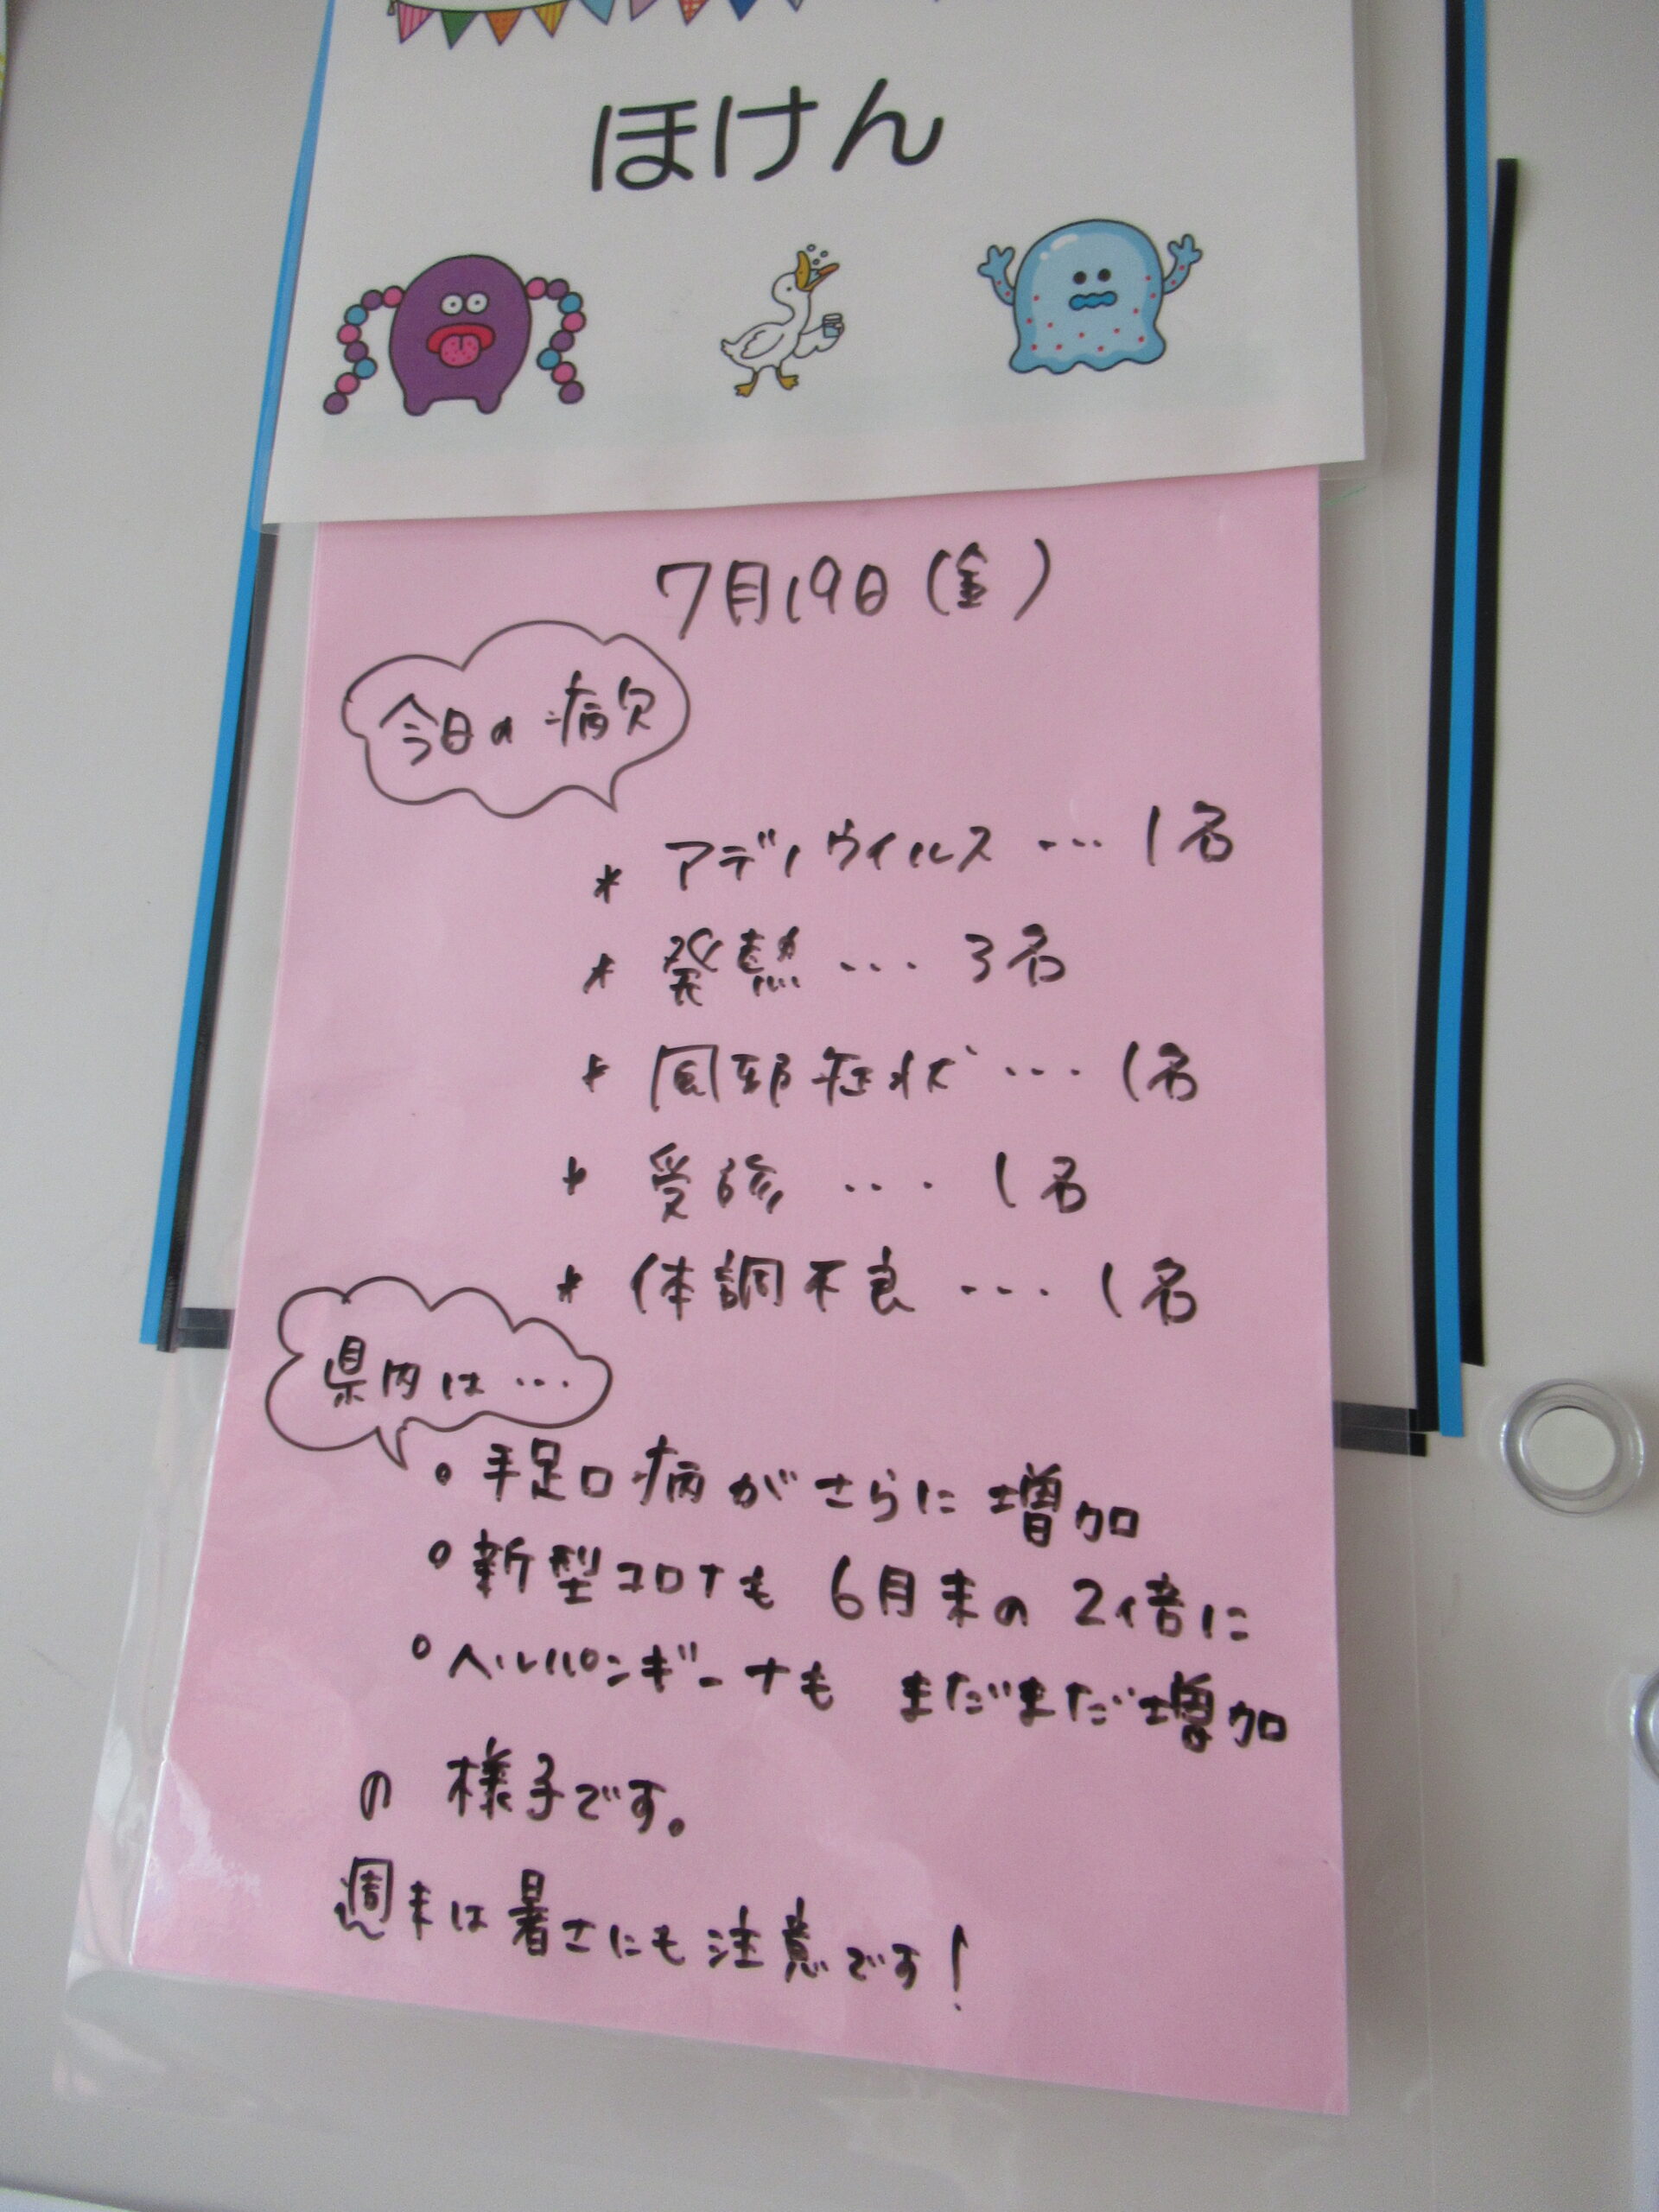 ほけん
7月19日(金)
今日の病欠
* アデノウイルス … 1名
* 発熱 … 3名
* 風邪症状 … 1名
* 受診 … 1名
* 体調不良 … 1名
県内は…
○手足口病がさらに増加
○新型コロナも 6月末の 2倍に
○ヘルパンギーナも まだまだ増加
の 様子です。
週末は暑さにも注意です!